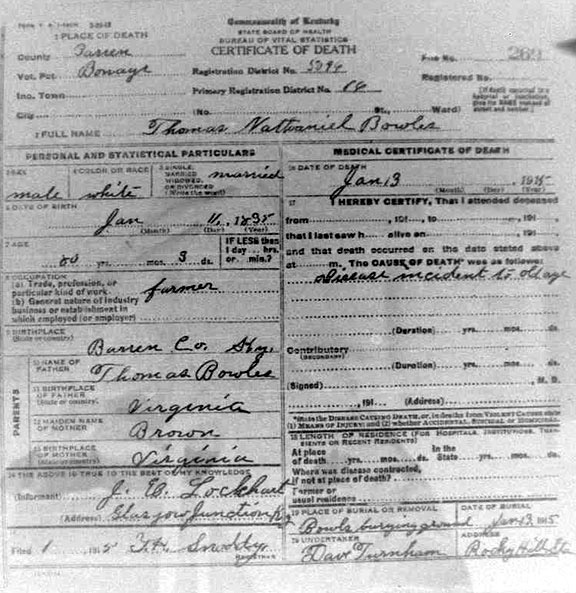 Commonwealth of Kentucky
STATE BOARD OF HEALTH
BUREAU OF VITAL STATISTICS
CERTIFICATE OF DEATH
1 PLACE OF DEATH
County Barren
Vot. Pct. Registration District No. File No. 269
Inc. Town Primary Registration District No. Registered No.
City (No. St., Ward)
2 FULL NAME Thomas Nathaniel Bowles
PERSONAL AND STATISTICAL PARTICULARS
3 SEX male
4 COLOR OR RACE white
5 SINGLE, MARRIED, WIDOWED, OR DIVORCED (Write the word) married
6 DATE OF BIRTH
Jan 11, 1835
(Month) (Day) (Year)
7 AGE
80 yrs. mos. 3 ds.
IF LESS than 1 day ... hrs. or min.?
8 OCCUPATION
(a) Trade, profession, or particular kind of work farmer
(b) General nature of industry
business or establishment in
which employed (or employer)
9 BIRTHPLACE
(State or country) Barren Co. Ky.
PARENTS
10 NAME OF FATHER Thomas Bowles
11 BIRTHPLACE OF FATHER
(State or country) Virginia
12 MAIDEN NAME OF MOTHER Brown
13 BIRTHPLACE OF MOTHER
(State or country) Virginia
14 THE ABOVE IS TRUE TO THE BEST OF MY KNOWLEDGE
(Informant) J. B. Lockhart
(Address) Glasgow Junction Ky
Filed 1 1915 REGISTRAR
MEDICAL CERTIFICATE OF DEATH
16 DATE OF DEATH
Jan 13 1915
(Month) (Day) (Year)
17 I HEREBY CERTIFY, That I attended deceased
from , 191 , to , 191
that I last saw h alive on , 191
and that death occurred on the date stated above
at m. The CAUSE OF DEATH* was as follows:
Disease incident to old age
(Duration) yrs. mos. ds.
Contributory
(SECONDARY)
(Duration) yrs. mos. ds.
(Signed) M. D.
, 191 (Address)
*State the DISEASE CAUSING DEATH, or, in deaths from VIOLENT CAUSES state
(1) MEANS OF INJURY; and (2) whether ACCIDENTAL, SUICIDAL or HOMICIDAL
18 LENGTH OF RESIDENCE (FOR HOSPITALS, INSTITUTIONS, TRANSIENTS OR RECENT RESIDENTS)
At place of death yrs. mos. ds. In the State yrs. mos. ds.
Where was disease contracted,
if not at place of death?
Former or
usual residence
19 PLACE OF BURIAL OR REMOVAL DATE OF BURIAL
Bowls burying ground Jan 13 1915
20 UNDERTAKER ADDRESS
Dave Turnham Rocky Hill Sta